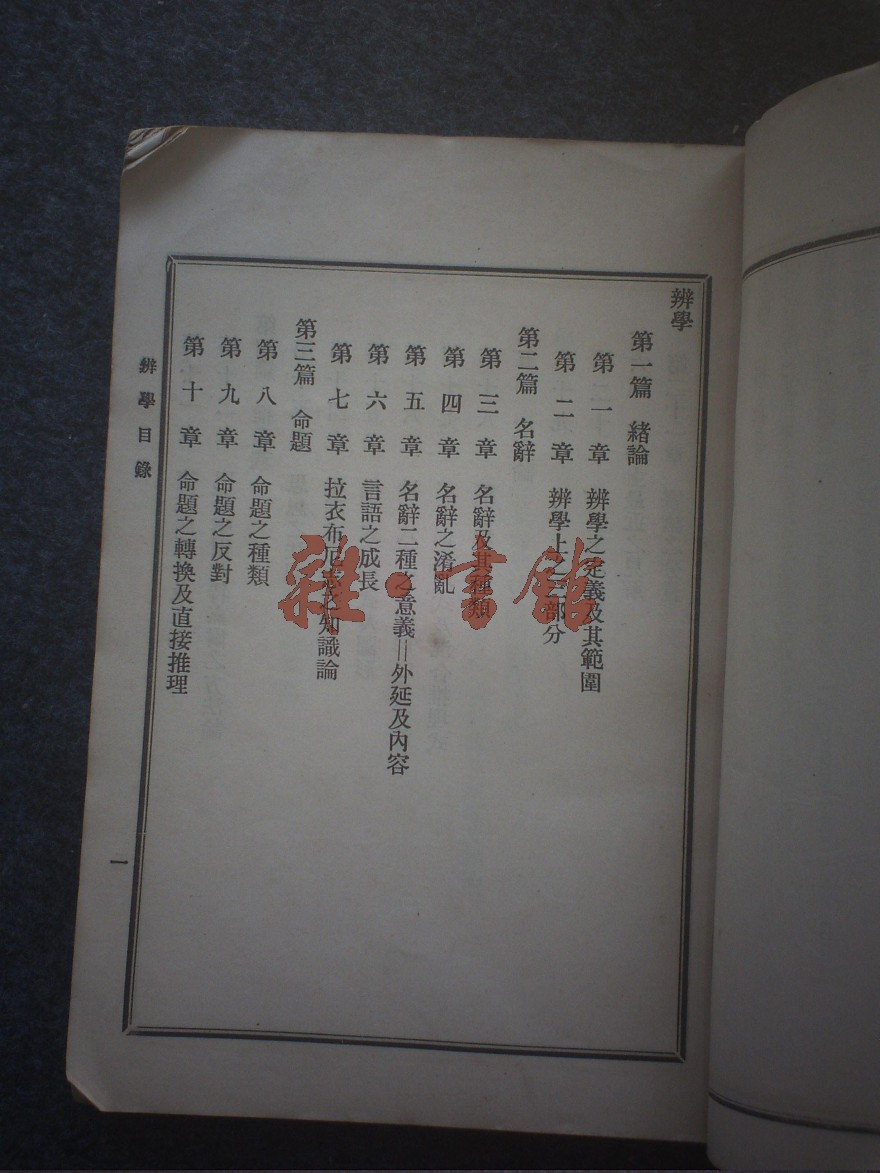 辨學
第一篇 緒論
第一章 辨學之定義及其範圍
第二章 辨學上之三部分
第二篇 名辭
第三章 名辭及其種類
第四章 名辭之淆亂
第五章 名辭二種之意義=外延及內容
第六章 言語之成長
第七章 拉衣布尼志之知識論
第三篇 命題
第八章 命題之種類
第九章 命題之反對
第十章 命題之轉換及直接推理
辨學目錄
一
雜·書館